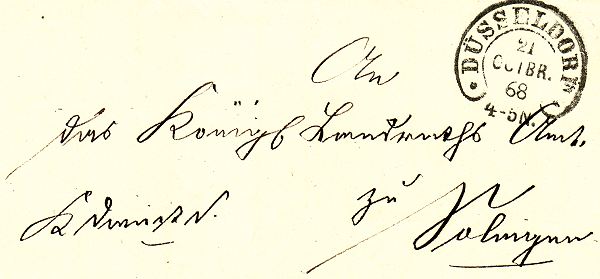 DÜSSELDORF
21
OCTBR.
68
4-5N.
An
das Königl Landraths Amt.
zu
Solingen